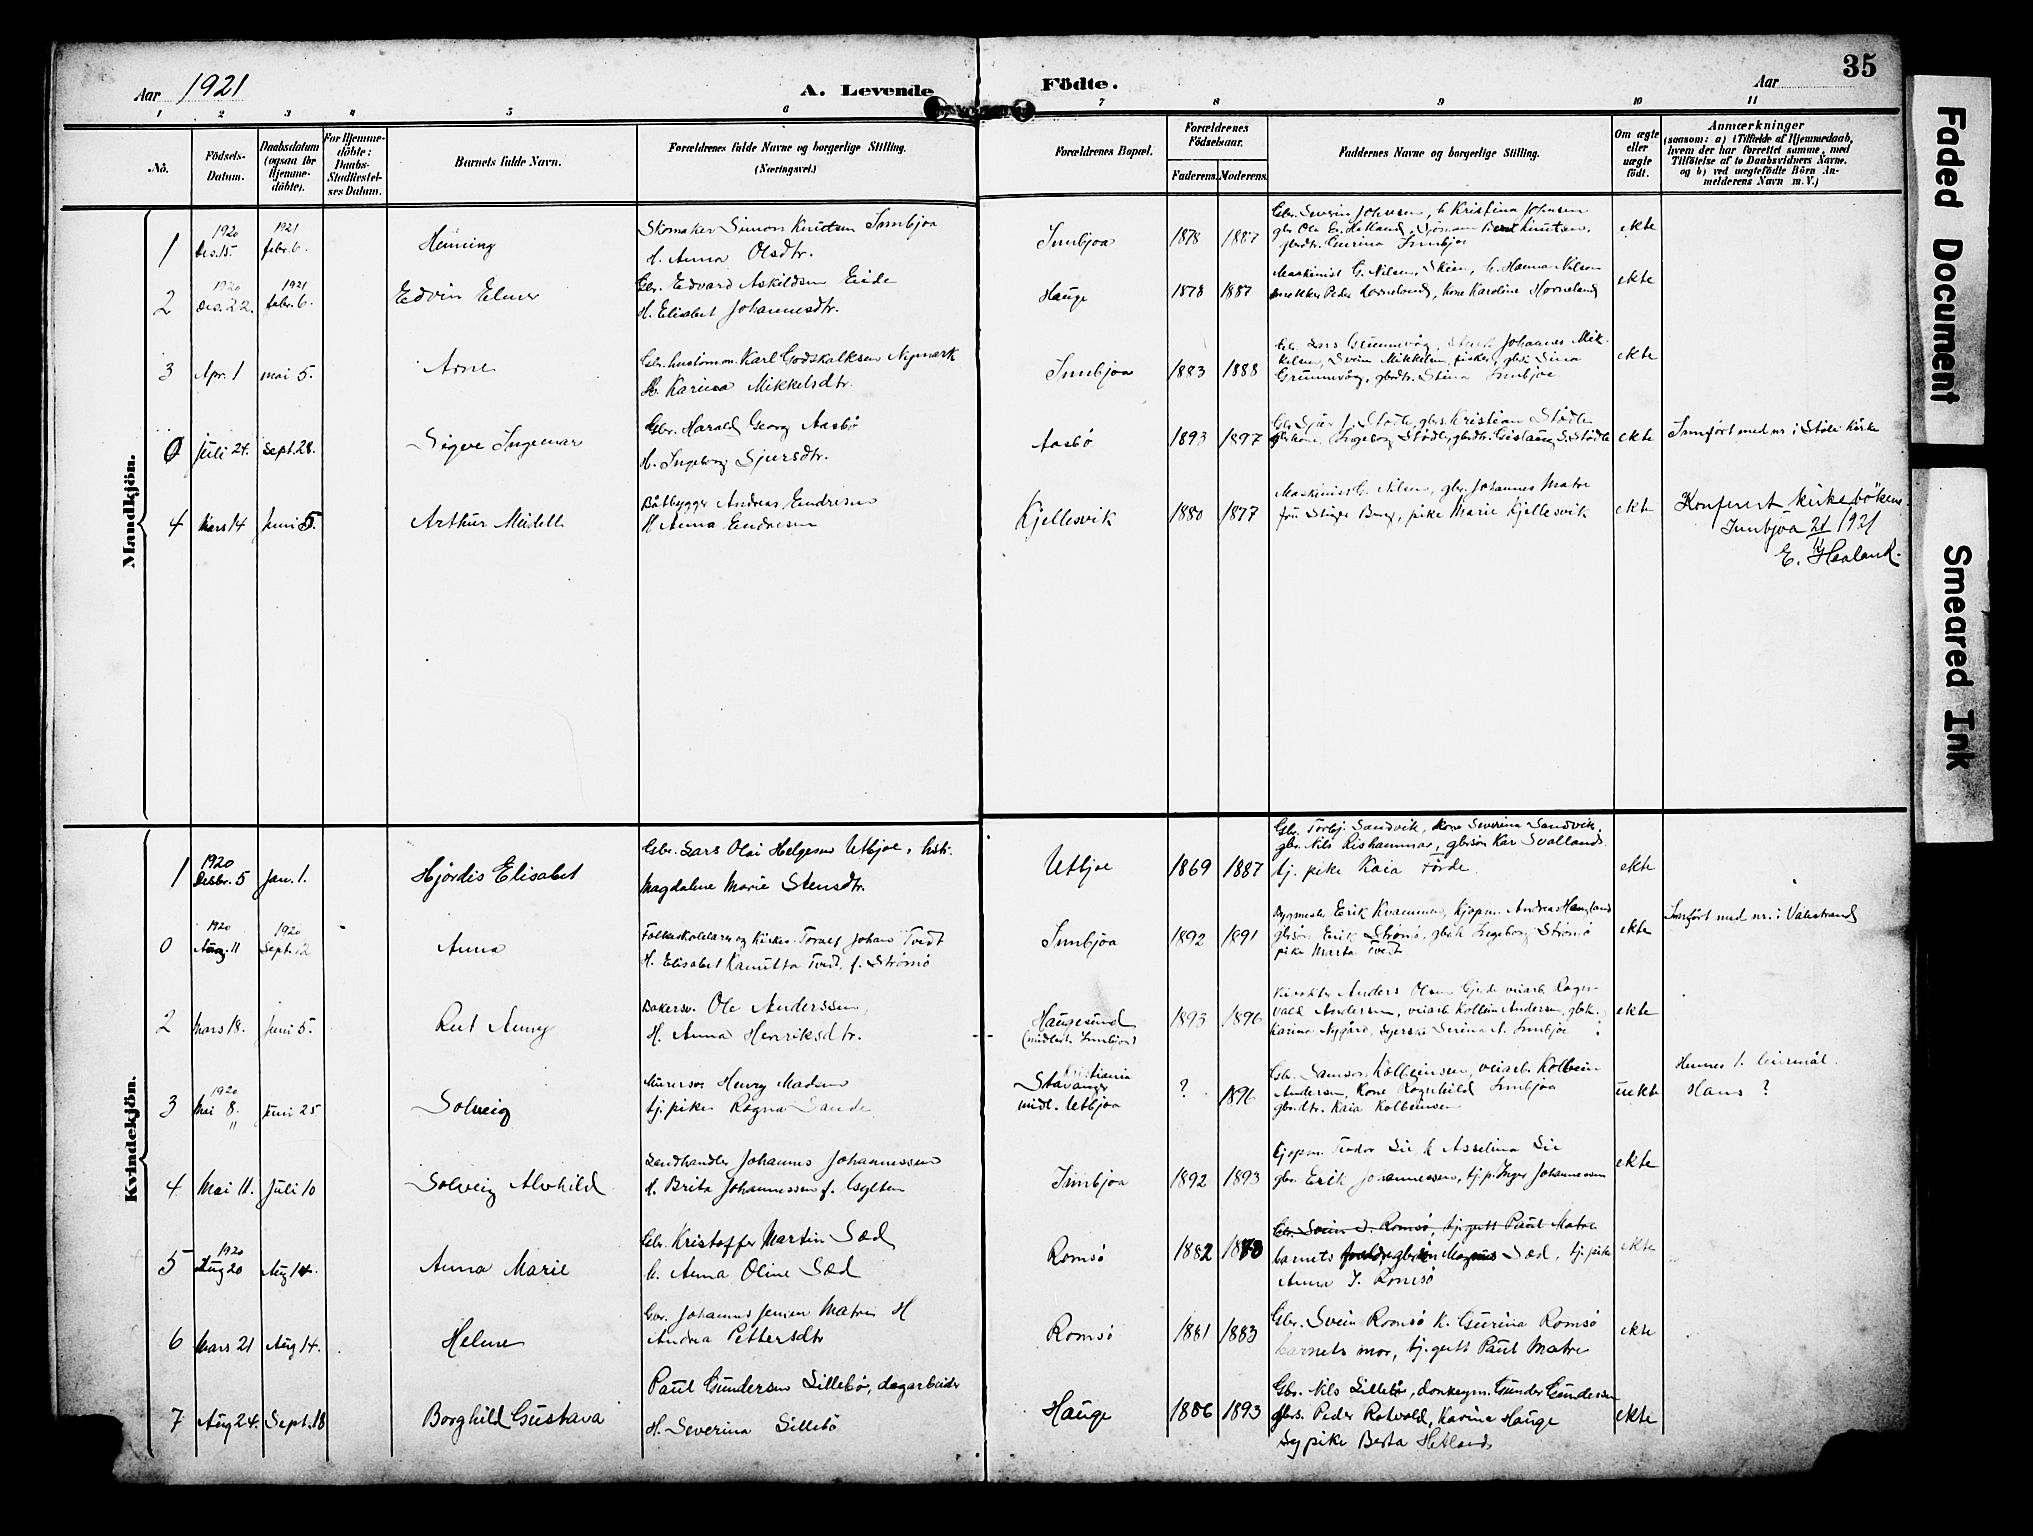 35
Aar 1921
A. Levende Födte.
Aar
1 2 3 4 5 6 7 8 9 10 11
No.
Födsels-Datum.
Daabsdatum (ogsaa for Hjemme-döbte).
For Hjemme-döbte: Daabs-Stadfæstel-ses Datum.
Barnets fulde Navn.
Forældrenes fulde Navne og borgerlige Stilling. (Næringsvei.)
Forældrenes Bopæl.
Forældrenes Födselsaar.
Faderens. Moderens.
Faddernes Navne og borgerlige Stilling.
Om ægte eller uægte födt.
Anmærkninger
(saasom: a) i Tilfælde af Hjemmedaab, hvem der har forrettet samme, med Tilföielse af to Daabsvidners Navne, og b) ved uægtefödte Börn Anmelderens Navn m. V.)
Mandkjön.
1 1920 Des. 15. 1921 febr. 6. Henning
Skomaker Simon Knutsen Innbjoa
H. Anna Olsdtr.
Innbjoa 1878 1887
Gbr. Severin Johnsen, k Kristina Johnsen
gbr Ole E. Hetland, Sjömann Knutsen,
gbrdtr. Gurina Innbjoa
ekte
2 1920 Des. 22. 1921 febr. 6. Edvin Elmer
Gbr. Edvard Askildsen Eide
H. Elisabet Johannesdtr.
Hauge 1878 1887
Maskinist G. Nilsen, Skien, k. Hanna Nilsen
snekker Peder Horneland, kone Karoline Horneland
ekte
3 Apr. 1 mai 5. Arne
Gbr. Karl Godskalksen Nymark
H. Karina Mikkelsdtr.
Innbjoa 1883 1888
Gbr. Lars Grunnevåg, Johannes Mik-
kelsen, Svein Mikkelsen, fisker, gbrk Sina
Grunnevåg, gbrdtr. Stina Innbjoe
ekte
0 Juli 24. Sept. 28. Sigve Ingemar
Gbr. Harald Georg Aasbö
H. Ingeborg Sjursdtr.
Aasbö 1893 1897
Gbr Sjur J. Stödle, gbrs Kristian Stödle
gbrkone Ingeborg Stödle, gbrdtr. Gislaug S. Stödle
ekte
Innfört med nr. i Stöle kirke
4 Mars 14 Juni 5. Arthur Meidell
Båtbygger Andreas Endresen
H Anna Endresen
Kjellesvik 1880 1877
Maskinist G. Nilsen, gbr. Johannes Matre
fru Berg, pike Marie Kjellesvik
ekte
Konferert kirkebökene
Innbjoa 21/11 1921
E. Haaland.
Kvindekjön.
1 1920 Desbr. 5 Jan. 1. Hjördis Elisabet
Gbr. Lars Olai Helgesen Utbjoe, hstr.
Magdalene Marie Stensdtr.
Utbjoe 1869 1887
Gbr. Torbj. Sandvik, kone Severina Sandvik,
gbr. Nils Rishammar, gbrsön Kar Svolland
tj. pike Kaia Förde.
ekte
0 1920 Aug. 11 1920 Sept. 12 Anna
Folkeskolelærer og kirkes. Toralf Johan Tvedt
H. Elisabet Kamitta Tvedt, f. Strömö
Innbjoa 1892 1891
Bygmester Erik Kvammen, Kjøpm. Andreas Haugland
gbrsön Erik Strömö, gbrk Ingeborg Strömö
pike Marta Tvedt
ekte
Innfört med nr. i Valestrand
2 Mars 18. Juni 5. Rut Anny
Bakersv. Ole Anderssen
H. Anna Henriksdtr.
Haugesund
(midlert. Innbjoa) 1893 1896
Anders Olsen Gjerde veiarb. Ragn-
vald Andersen, veiarb. Kolbein Andersen, gbrk.
Karina Nygård, syerske Serina A. Innbjoe
ekte
3 1920 Mai 8. " Juni 25 Solveig
Murersv. Henry Madsen
tj. pike Ragna Sande
Kristiania
Stavanger
midl. Utbjoa ? 1896
Gbr. Samson Kolbeinsen, veiarb Kolbein
Andersen, Kone Ragnhild Innbjoa
gbr.dtr. Kaia Kolbeinsen
uekte
Hennes 1. leiermål.
Hans ?
4 Mai 11. Juli 10 Solveig Alvhild
Landhandler Johannes Johannessen
H. Brita Johannessen f. Gylten
Innbjoa 1892 1893
Kjøpm. Teodor Lie k Asselina Lie
gbr. Erik Johannessen, tj. p. Inger Johannessen
ekte
5 1920 Aug 20 Aug 14. Anna Marie
Gbr. Kristoffer Martin Sæd
k. Anna Oline Sæd
Romsö 1882 1883
Gbr. Svein J. Romsö, tj. gutt Paul Matre
barnets foreldre, gbrsön Magnus Sæd, tj. pike
Anna J. Romsö
ekte
6 Mars 21 Aug 14. Helene
Gbr. Johannes Jensen Matre H
Andrea Pettersdtr
Romsö 1881 1883
Gbr. Svein Romsö k. Gurina Romsö
barnets mor, tj. gutt Paul Matre
ekte
7 Aug 24. Sept. 18 Borghild Gustava
Paul Gundersen Lillebö, dagarbeider
H. Severina Lillebö
Hauge 1886 1893
Gbr. Nils Lillebö, donkeym. Gunder Gundersen
gbrs. Peder Rotvold, Karina Hauge
Sypike Berta Hetland
ekte
Faded Document
Smeared Ink